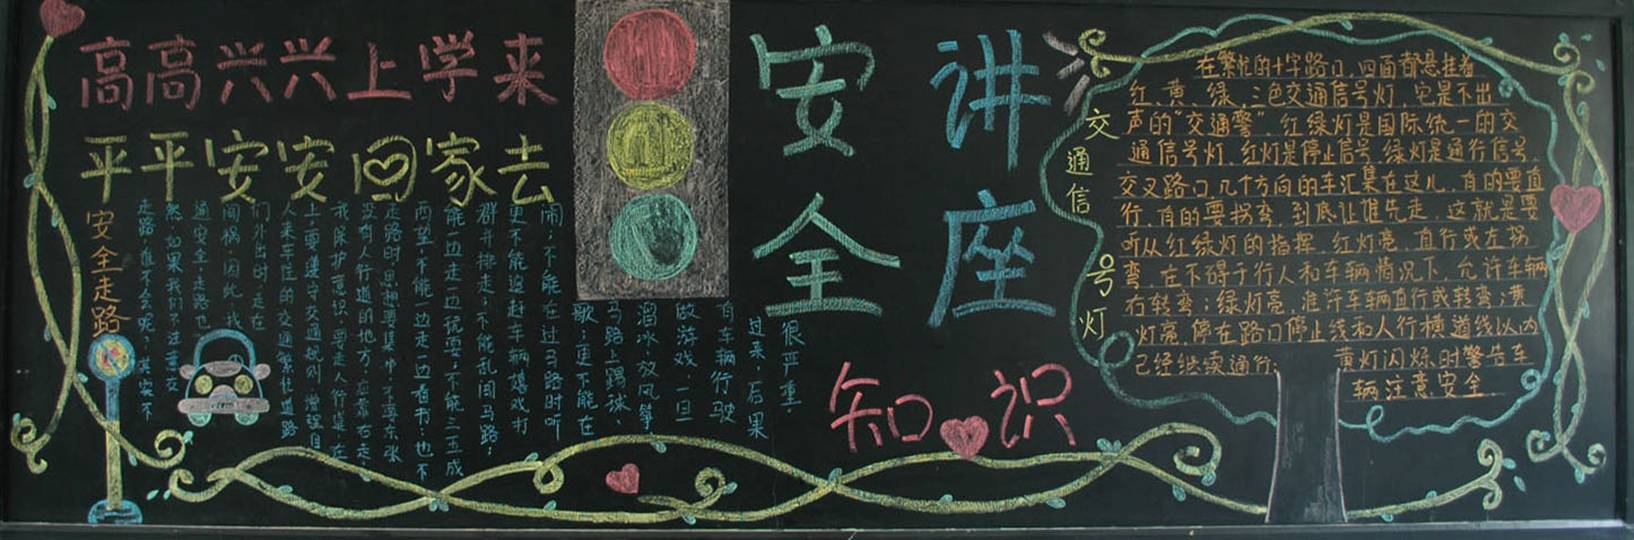 高高兴兴上学来
平平安安回家去
安全走路
走路,谁不会呢?其实不
然,如果我们不注意交
通安全,走路也
闯祸.因此,我
们外出时,走在
人来车往的交通繁忙道路
上要遵守交通规则,增强自
我保护意识,要走人行道,在
没有人行道的地方,应靠右走,
走路时思想要集中,不要东张
西望,不能一边走一边看书,也不
能一边走一边玩耍;不能三五成
群并排走;不能乱闯马路;
更不能追赶车辆嬉戏打
闹;不能在过马路时听
歌;更不能在
马路上踢球、
溜冰、放风筝
做游戏.一旦
有车辆行驶
过来,后果
很严重.
安全
讲座
知识
交通信号灯
在繁忙的十字路口,四面都悬挂着
红、黄、绿,三色交通信号灯,它是不出
声的"交通警".红绿灯是国际统一的交
通信号灯.红灯是停止信号,绿灯是通行信号.
交叉路口,几个方向的车汇集在这儿,有的要直
行,有的要拐弯,到底让谁先走,这就是要
听从红绿灯的指挥.红灯亮,直行或左拐
弯,在不碍于行人和车辆情况下,允许车辆
右转弯;绿灯亮,准许车辆直行或转弯;黄
灯亮,停在路口停止线和人行横道线以内
己经继续通行;黄灯闪烁时警告车
辆注意安全.